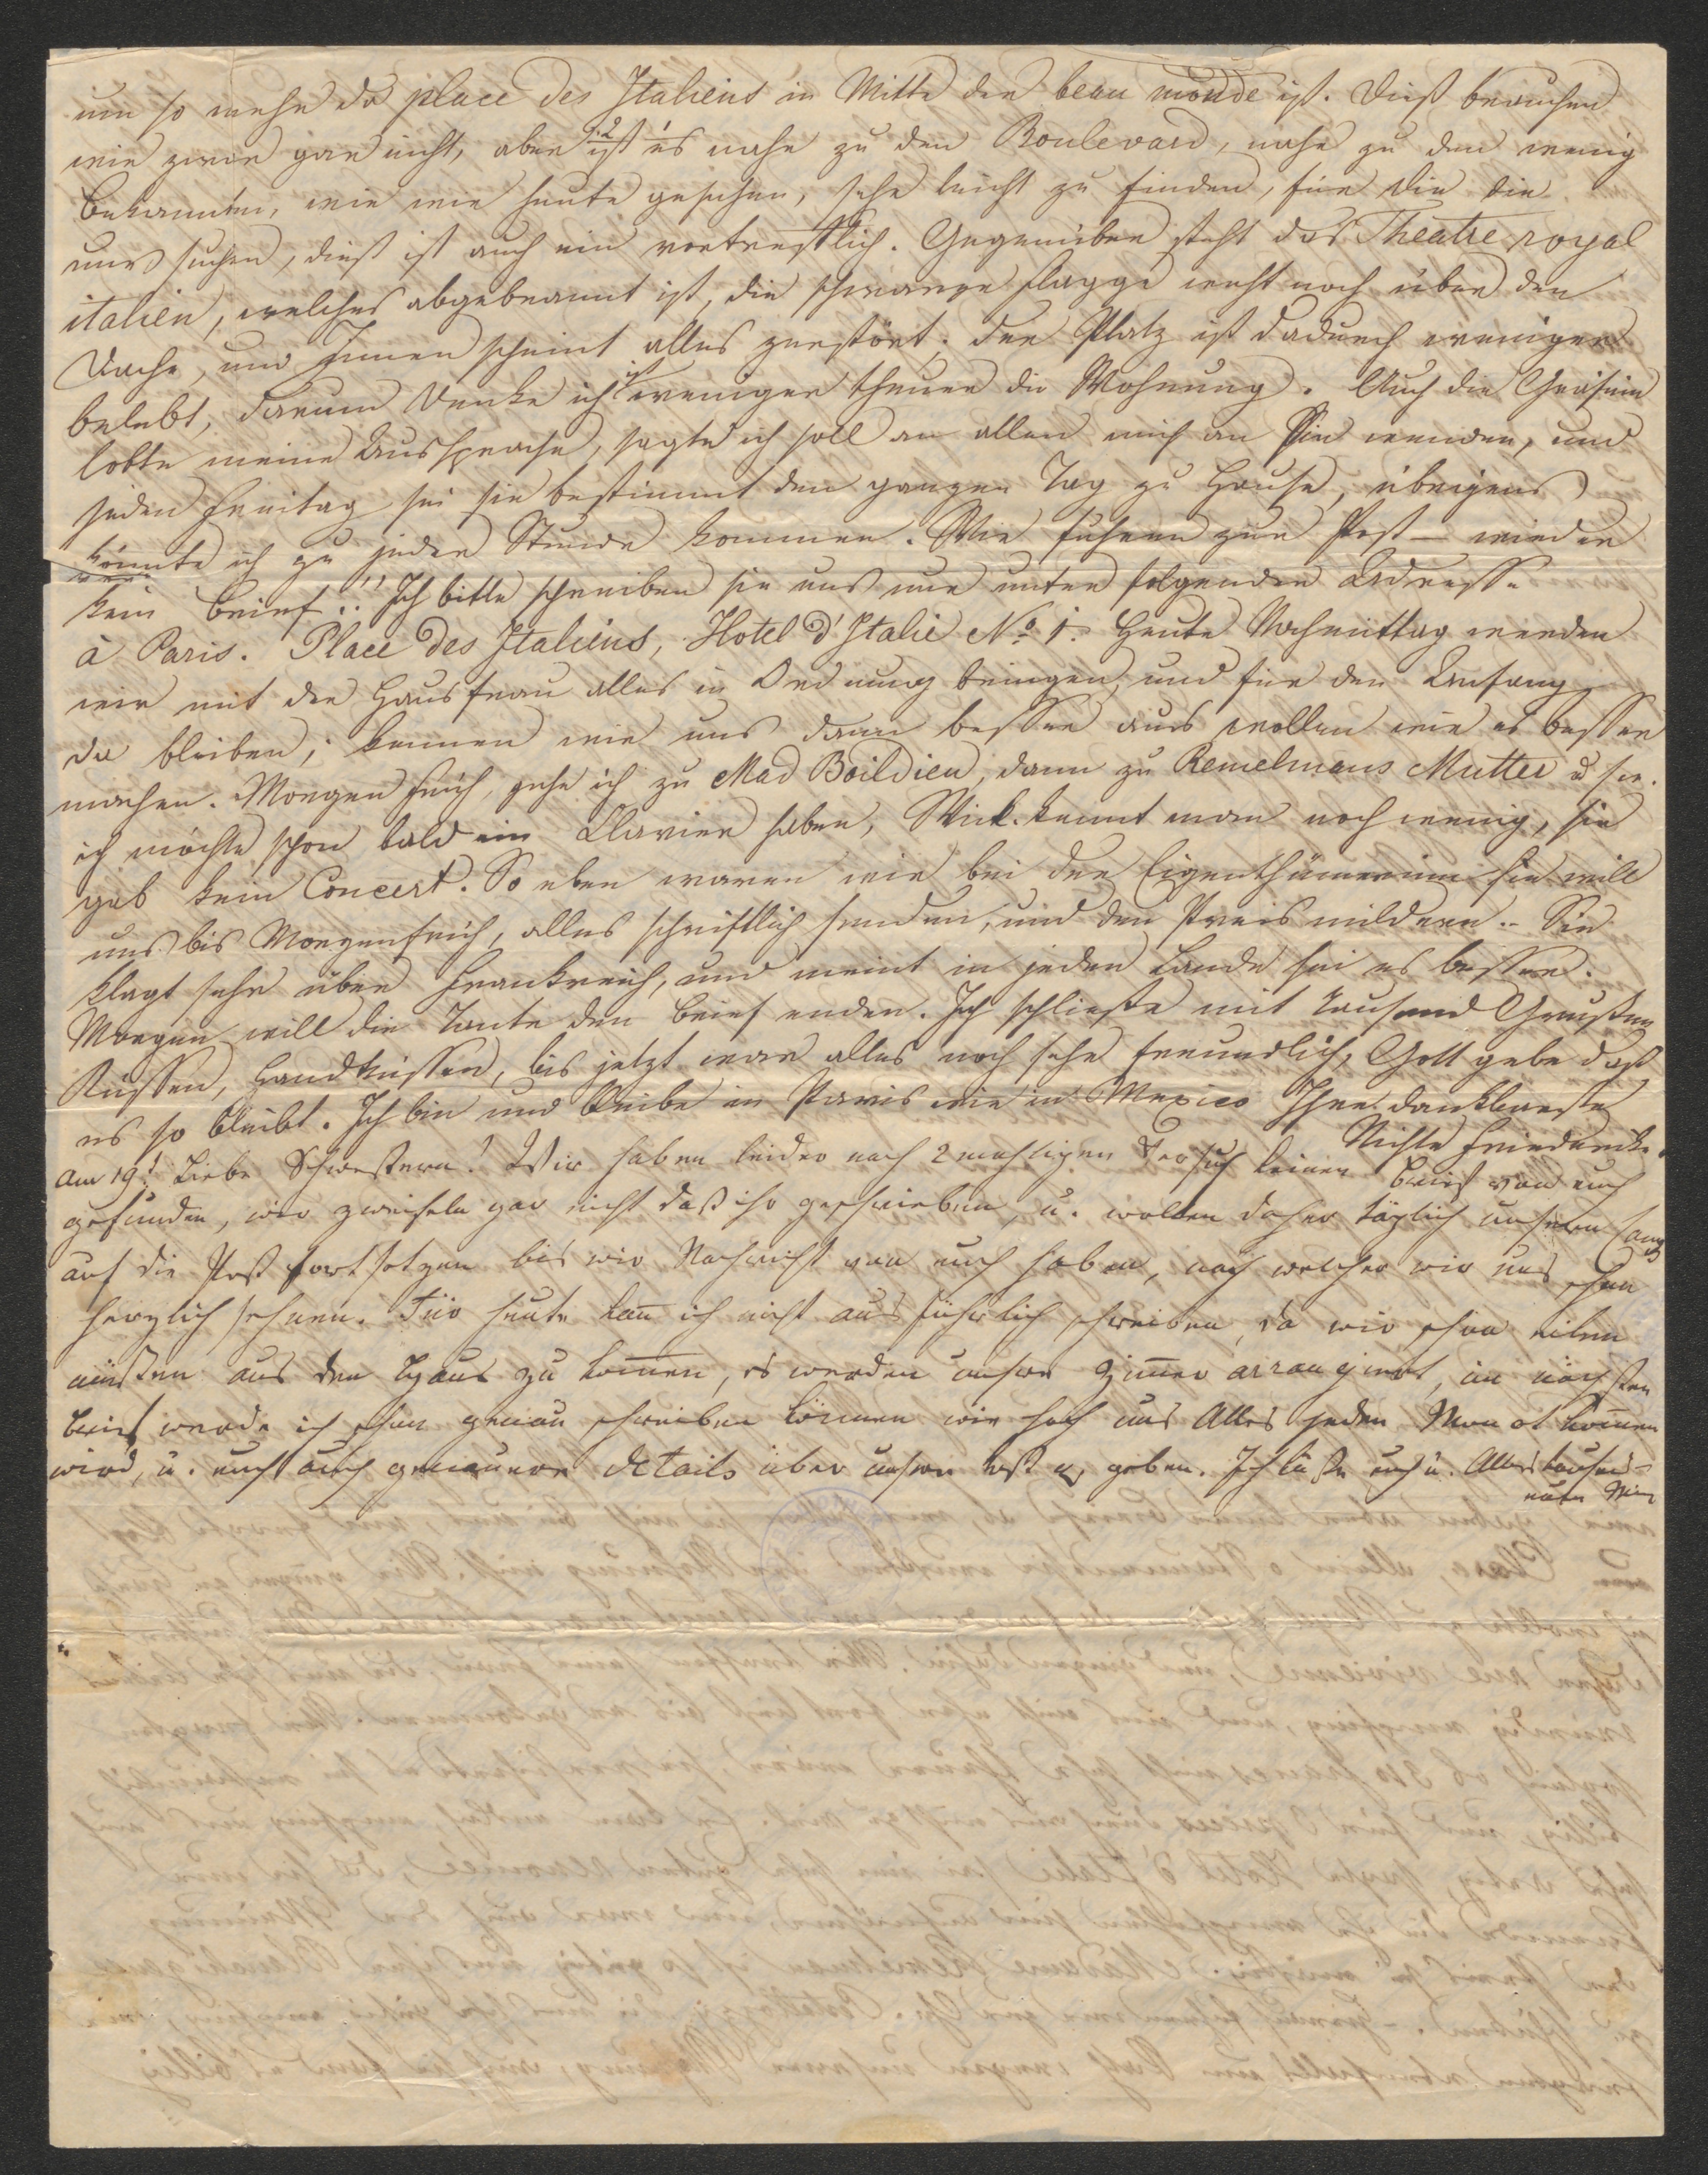 um so mehr da place des Italiens in Mitte der beau monde ist. Dieß brauchen
wir zwar gar nicht, aber ist es nahe zu den Boulevard, nahe zu den wenig
Bekannten, wie wir heute gesehen, sehr leicht zu finden, für die die
uns suchen, dieß ist auch ein vortrefflich. Gegenüber steht das Theatre royal
italien, welches abgebrannt ist, die schwarze Flagge weht noch über den
Dache, und Innen scheint alles zerstört. Der Platz ist dadurch weniger
belebt, darum denke ich ist weniger theuer die Wohnung. Auch die Gräfinn
lobte meine Aussprache, sagte ich soll an allen mich an Sie wenden, und
jeden Freitag sei sie bestimmt den ganzen Tag zu Hause, übrigens
könnte ich zu jeder Stunde kommen. Wir fuhren zur Post – wieder
kein Brief!! Ich bitte schreiben sie uns nur unter folgender Adresse
à Paris. Place des Italiens, Hotel d'Italie No 1. Heute Nachmittag werden
wir mit der Hausfrau alles in Ordnung bringen, und für den Anfang
da bleiben; kennen wir uns dann besser aus wollen wir es besser
machen. Morgen früh, gehe ich zu Mad Boildieu, dann zu Remelmans Mutter
ich möchte schon bald ein Clavier haben, Wiek. kennt man noch wenig, sie
gab kein Concert. So eben waren wir bei der Eigenthümerinn sie will
uns bis Morgenfrüh, alles schriftlich senden, und den Preis mildern. Sie
klagt sehr über Frankreich, und meint in jeden Lande sei es besser.
Morgen will die Tante den Brief enden. Ich schließe mit tausend Grüßen
Küssen, Handküssen, bis jetzt war alles noch sehr freundlich, Gott gebe daß
es so bleibt. Ich bin und bleibe in Paris wie in Mexico Ihre dankbarste
Nichte Friederike.
Am 19t Liebe Schwestern! Wir haben leider nach 2 mahligen Versuch keinen Brief von euch
gefunden, wir zweifeln gar nicht daß ihr geschrieben, u. wollen daher täglich unsern Gang
auf die Post fortsetzen bis wir Nachricht von euch haben, nach welcher wir uns schon
herzlich sehnen. Für heute kan ich nicht ausführlich schreiben, da wir schon eilen
müßen aus den Haus zu komen, es werden unsere Zimer arrangiert, im nächsten
Brief werde ich schon genau schreiben können wie hoch uns Alles jeden Monat komen
wird, u. euch auch genauere Details über unsere geben. Ich küße euch u. Alles tausend-